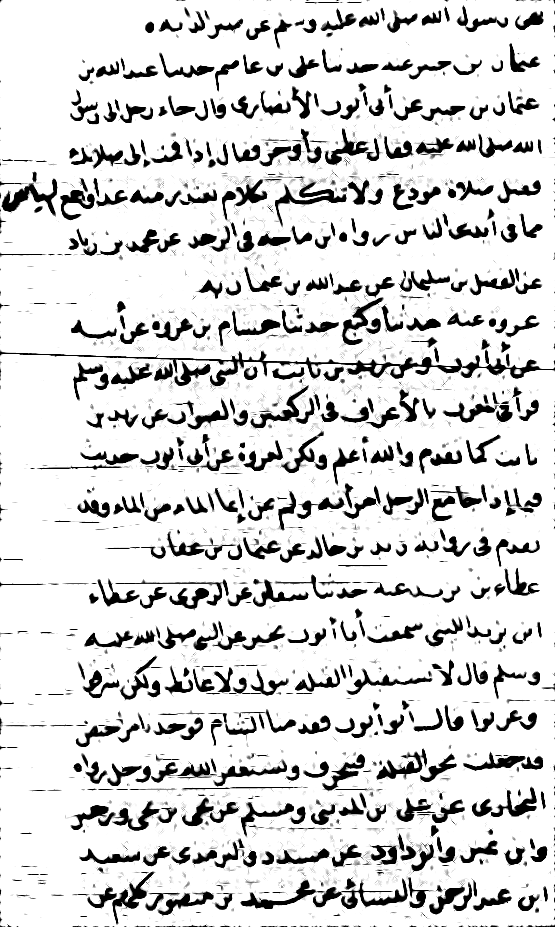 نهى رسول الله صلى الله عليه وسلم عن صبر الدابه ه
عثمان بن جبير عنه حدثنا علي بن عاصم حدثنا عبد الله بن
عثمان بن جبير عن أبي أيوب الأنصاري قال جاء رجل إلى رسول
الله صلى الله عليه فقال عظني وأوجز فقال إذا قمت إلى صلاتك
فصل صلاة مودع ولا تتكلم بكلام تعتذر منه غدا واجمع اليأس
مما في أيدي الناس رواه ابن ماجه في الزهد عن محمد بن زياد
عن الفضل بن سليمان عن عبد الله بن عثمان به
عروه عنه حدثنا وكيع حدثنا هشام بن عروه عن أبيه
عن أبي أيوب أو عن زيد بن ثابت أن النبي صلى الله عليه وسلم
قرأ في المغرب بالأعراف في الركعتين والصواب عن زيد بن
ثابت كما تقدم والله أعلم ولكن لعروة عن أبي أيوب حديث
فيما إذا جامع الرجل امرأته ولم يمن إنما الماء من الماء وقد
تقدم في رواية زيد بن خالد عن عثمان بن عفان
عطاء بن يزيد عنه حدثنا سفيان عن الزهري عن عطاء
ابن يزيد الليثي سمعت أبا أيوب يخبر عن النبي صلى الله عليه
وسلم قال لا تستقبلوا القبله ببول ولا غائط ولكن شرقوا
وغربوا قال أبو أيوب فقدمنا الشام فوجدنا مراحيض
قد جعلت نحو القبلة فننحرف ونستغفر الله عز وجل رواه
البخاري عن علي بن المديني ومسلم عن يحيى بن يحيى وزهير
وابن نمير وأبو داود عن مسدد والترمذي عن سعيد
ابن عبد الرحمن والنسائي عن محمد بن منصور كلهم عن